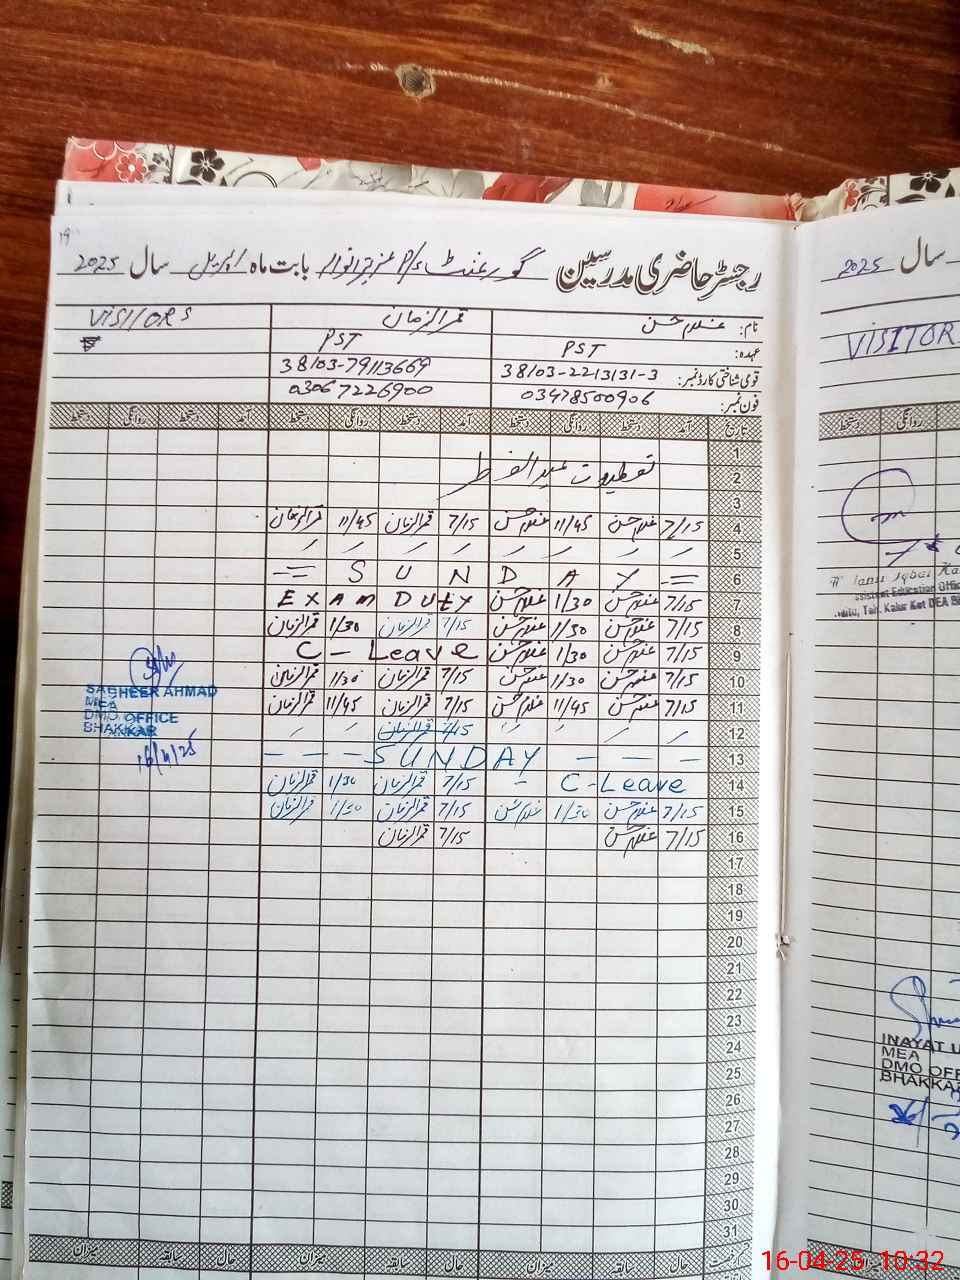 رجسٹر حاضری مدرسین گورنمنٹ P/S بابت ماہ اپریل سال 2025
نام: غلام حسن قمر الزمان VISITORS
عہدہ: PST PST
قومی شناختی کارڈ نمبر: 38103-2213131-3 38103-79113669
فون نمبر: 03478500906 03067226900
تاریخ آمد دستخط روانگی دستخط آمد دستخط روانگی دستخط آمد دستخط روانگی دستخط
1
2 تعطیلات عید الفطر
3
4 7/15 غلام حسن 11/45 غلام حسن 7/15 قمر الزمان 11/45 قمر الزمان
5 〃 〃 〃 〃 〃 〃 〃 〃
6 = S U N D A Y =
7 7/15 غلام حسن 1/30 غلام حسن Exam Duty
8 7/15 غلام حسن 1/30 غلام حسن 7/15 قمر الزمان 1/30 قمر الزمان
9 7/15 غلام حسن 1/30 غلام حسن C-Leave
10 7/15 غلام حسن 1/30 غلام حسن 7/15 قمر الزمان 1/30 قمر الزمان
11 7/15 غلام حسن 11/45 غلام حسن 7/15 قمر الزمان 11/45 قمر الزمان
12 〃 〃 〃 〃 7/15 قمر الزمان 〃 〃
13 - - - SUNDAY - - -
14 C-Leave - 7/15 قمر الزمان 1/30 قمر الزمان
15 7/15 غلام حسن 1/30 غلام حسن 7/15 قمر الزمان 1/30 قمر الزمان
16 7/15 غلام حسن 7/15 قمر الزمان
17
18
19
20
21
22
23
24
25
26
27
28
29
30
31
حال سابقہ میزان حال سابقہ میزان حال سابقہ میزان
SAGHEER AHMAD
MEA
DMO OFFICE
BHAKKAR
16/4/25
سال 2025
VISITOR
روانگی دستخط
Iqbal
Assistant Education Offic
Tah. Kalur Kot DEA B
INAYAT U
MEA
DMO OFF
BHAKKA
16-04-25 10:32